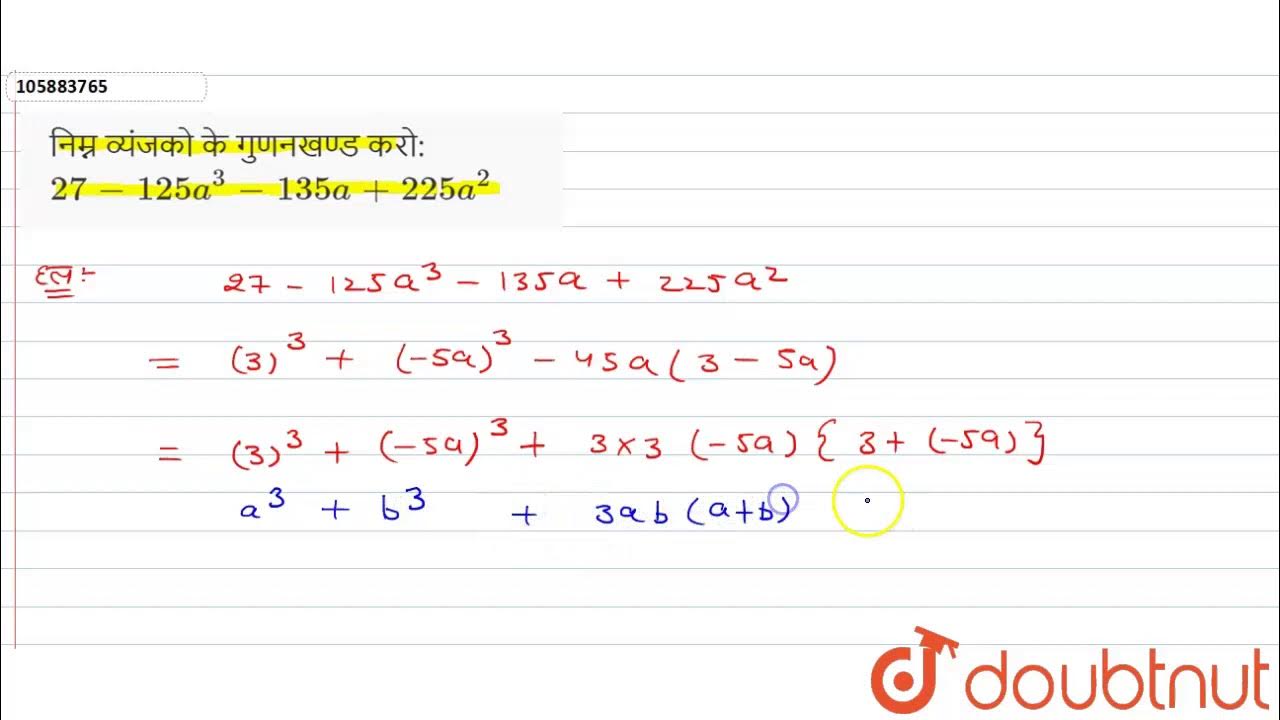 105883765
निम्न व्यंजको के गुणनखण्ड करो:
27 − 125a³ − 135a + 225a²
हल:-
27 - 125a³ - 135a + 225a²
= (3)³ + (-5a)³ - 45a (3 - 5a)
= (3)³ + (-5a)³ + 3×3 (-5a) {3 + (-5a)}
a³ + b³ + 3ab (a+b)
doubtnut